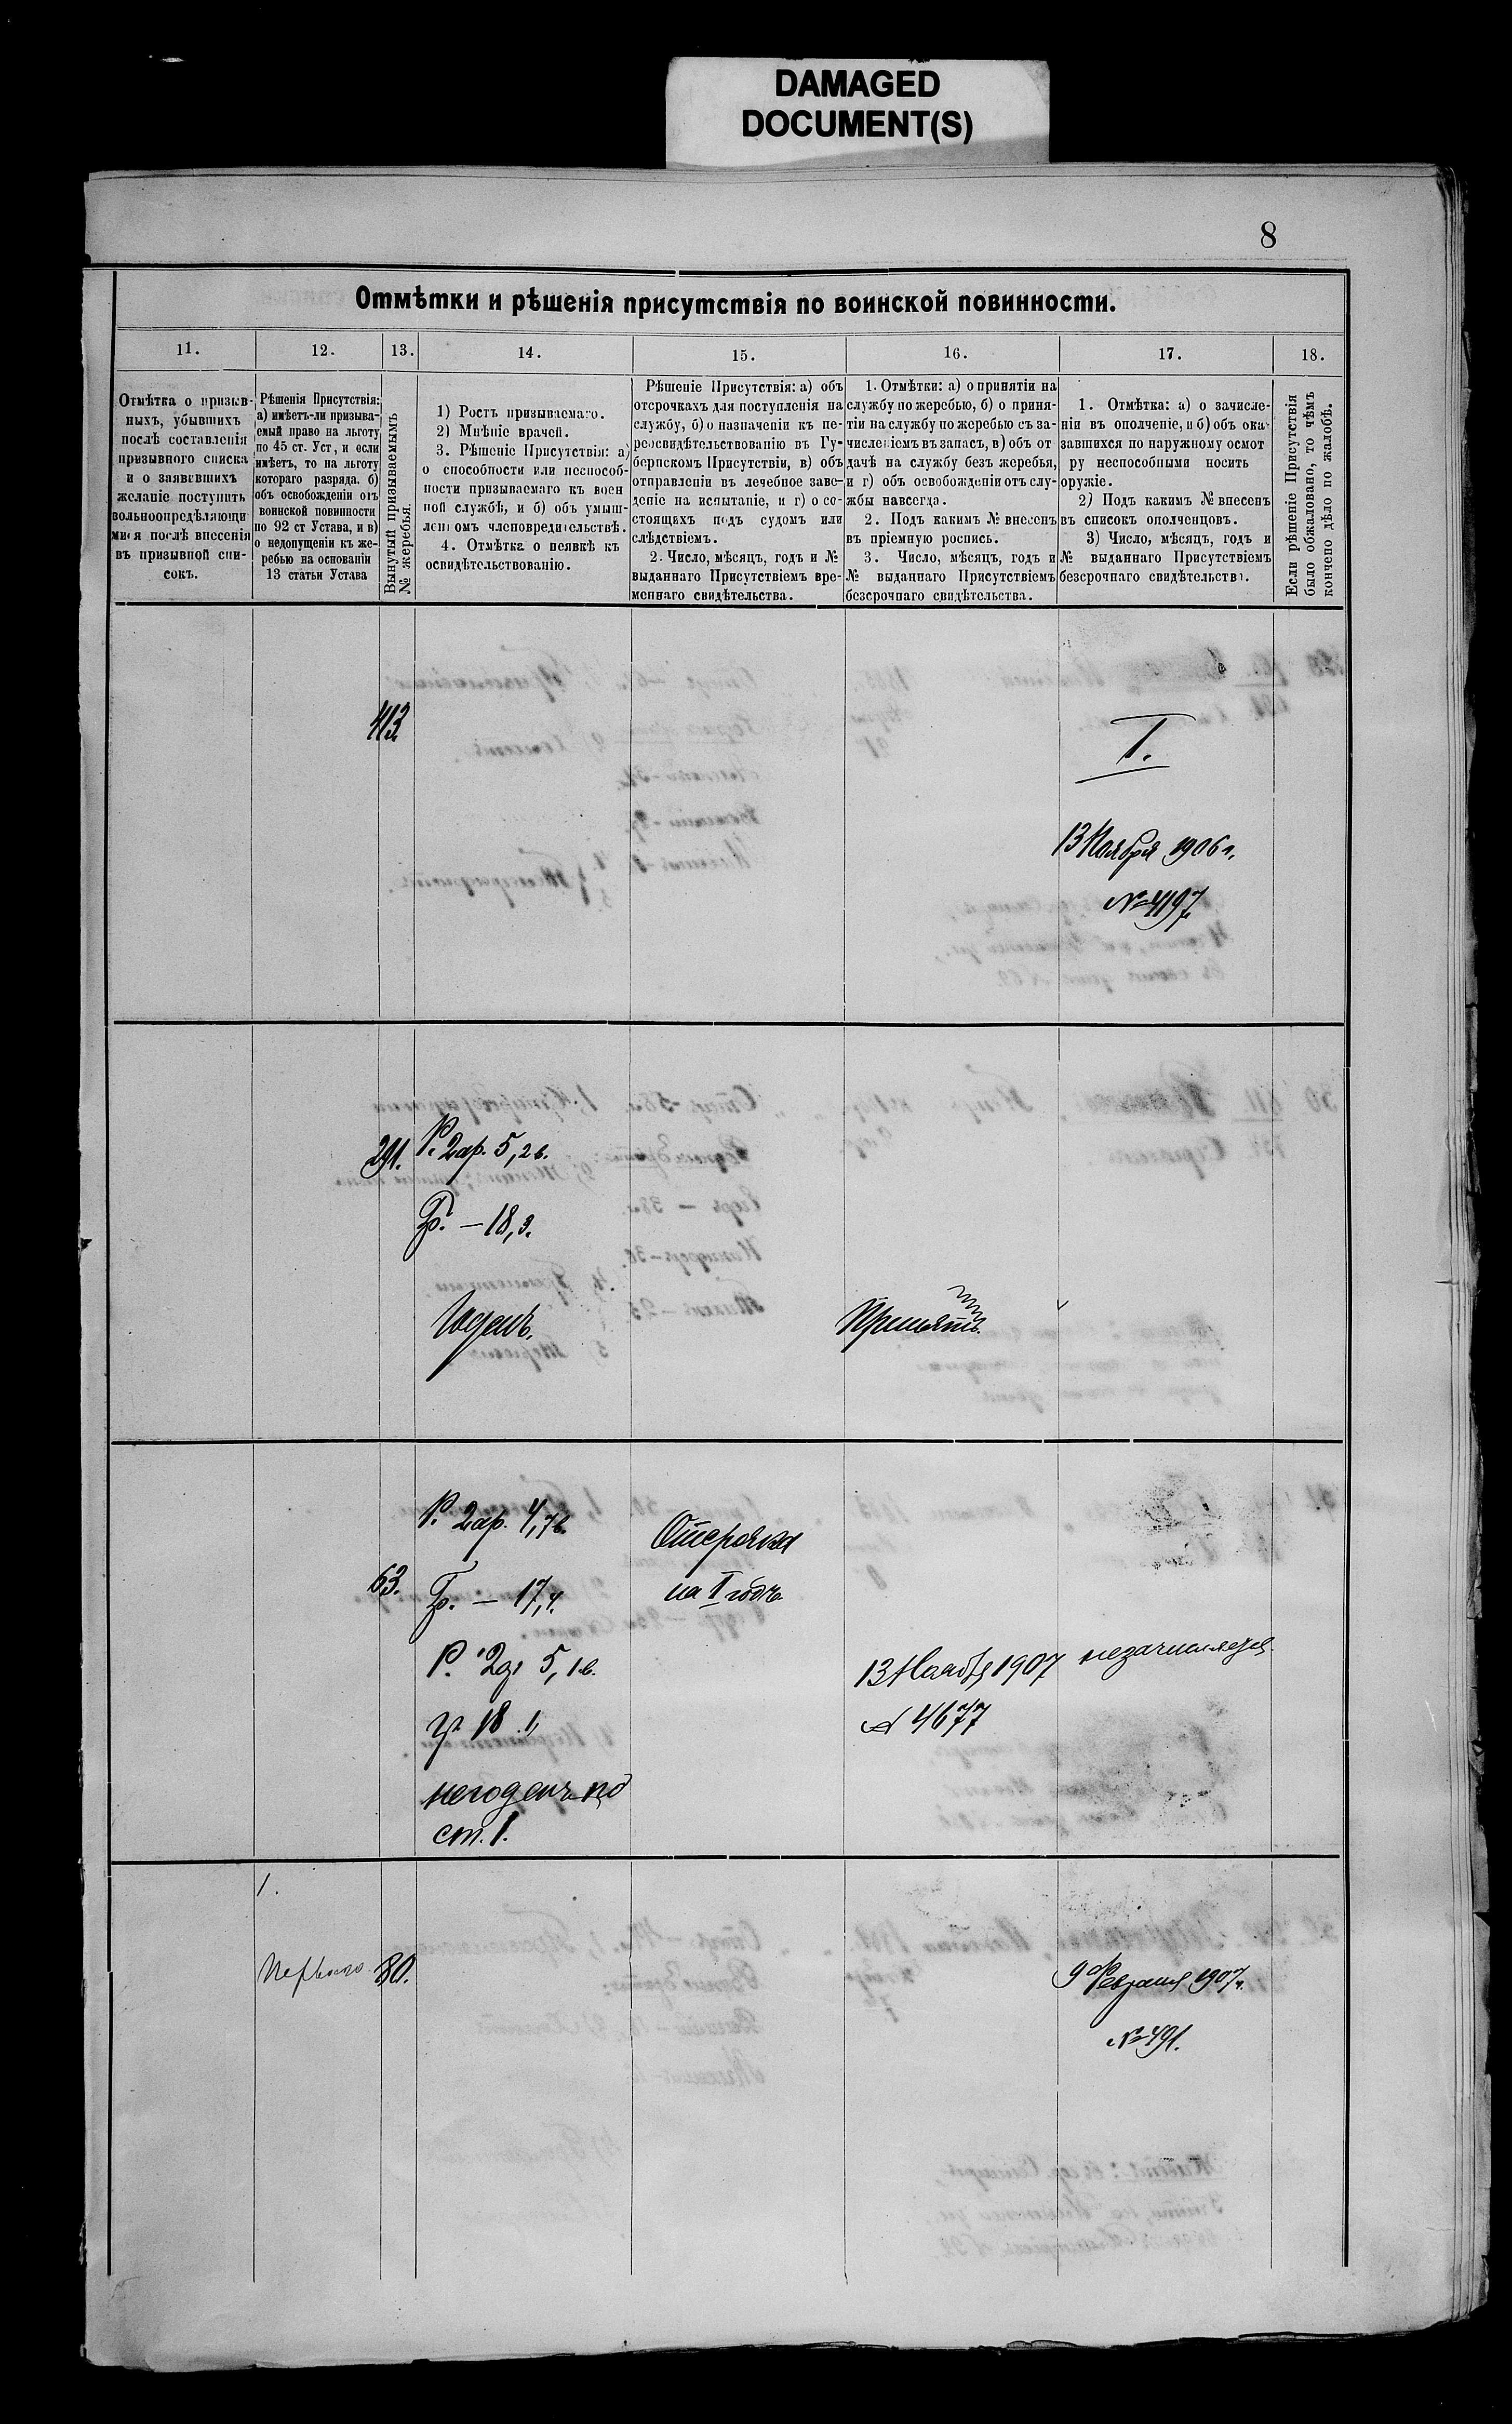 DAMAGED
DOCUMENT(S)
8
Отмѣтки и рѣшенія присутствія по воинской повинности.
11.
12.
13.
14.
15.
16.
17.
18.
Отмѣтка о призыв-
ныхъ, убывшихъ
послѣ составленія
призывного списка
и о заявившихъ
желаніе поступить
вольноопредѣляющи
мися послѣ внесенія
въ призывной спи-
сокъ.
Рѣшенія Присутствія:
а) имѣетъ-ли призыва-
емый право на льготу
по 45 ст. Уст, и если
имѣетъ, то на льготу
котораго разряда. б)
объ освобожденіи отъ
воинской повинности
по 92 ст Устава, и в)
о недопущеніи къ же-
ребью на основаніи
13 статьи Устава
Вынутый призываемымъ
№ жеребья.
1) Ростъ призываемаго.
2) Мнѣніе врачей.
3. Рѣшеніе Присутствія: а)
о способности или неспособ-
ности призываемаго къ воен
ной службѣ, и б) объ умыш-
ленномъ членовредительствѣ.
4. Отмѣтка о неявкѣ къ
освидѣтельствованію.
Рѣшеніе Присутствія: а) объ
отсрочкахъ для поступленія на
службу, б) о назначеніи къ пе-
реосвидѣтельствованію въ Гу-
бернскомъ Присутствіи, в) объ
отправленіи въ лечебное заве-
деніе на испытаніе, и г) о со-
стоящихъ подъ судомъ или
слѣдствіемъ.
2. Число, мѣсяцъ, годъ и №
выданнаго Присутствіемъ вре-
меннаго свидѣтельства.
1. Отмѣтки: а) о принятіи на
службу по жеребью, б) о приня-
тіи на службу по жеребью съ за-
численіемъ въ запасъ, в) объ от
дачѣ на службу безъ жеребья,
и г) объ освобожденіи отъ слу-
жбы навсегда.
2. Подъ какимъ № внесенъ
въ пріемную роспись.
3. Число, мѣсяцъ, годъ и
№ выданнаго Присутствіемъ
безсрочнаго свидѣтельства.
1. Отмѣтка: а) о зачисле-
ніи въ ополченіе, и б) объ ока-
завшихся по наружному осмот
ру неспособными носить
оружіе.
2) Подъ какимъ № внесенъ
въ списокъ ополченцовъ.
3) Число, мѣсяцъ, годъ и
№ выданнаго Присутствіемъ
безсрочнаго свидѣтельства.
Если рѣшеніе Присутствія
было обжаловано, то чѣмъ
кончено дѣло по жалобѣ.
413.
I.
13 Ноября 1906 г.
№ 4197
291.
Р. 2ар. 5,2 в.
Гр. – 18,3.
Годенъ.
Принятъ.
63.
Р. 2ар. 4,7в.
Гр. – 17,4.
Р. 2д 5,1 в.
гр 18 1,
негоденъ по
ст. 1.
Отсрочка
на I годъ.
13 Ноября 1907
№ 4677
незачисляется
1.
Первого
80.
9 Февраля 1907 г.
№ 491.